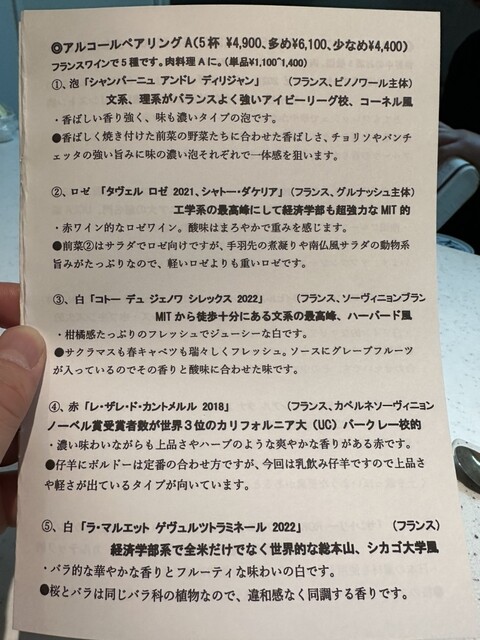 ◎アルコールペアリングA(5杯 ¥4,900、多め¥6,100、少なめ¥4,400)
フランスワインで5種です。肉料理Aに。(単品¥1,100~1,400)
①、泡「シャンパーニュ アンドレ ディリジャン」 (フランス、ピノノワール主体)
文系、理系がバランスよく強いアイビーリーグ校、コーネル風
・香ばしい香り強く、味も濃いタイプの泡です。
●香ばしく焼き付けた前菜の野菜たちに合わせた香ばしさ、チョリソやパンチ
ェッタの強い旨みに味の濃い泡それぞれで一体感を狙います。
②、ロゼ 「タヴェル ロゼ 2021、シャトー・ダケリア」 (フランス、グルナッシュ主体)
工学系の最高峰にして経済学部も超強力なMIT的
・赤ワイン的なロゼワイン。酸味はまろやかで重みを感じます。
●前菜②はサラダでロゼ向けですが、手羽先の煮凝りや南仏風サラダの動物系
旨みがたっぷりなので、軽いロゼよりも重いロゼです。
③、白「コトー デュ ジェノワ シレックス 2022」 (フランス、ソーヴィニョンブラン
MITから徒歩十分にある文系の最高峰、ハーバード風
・柑橘感たっぷりのフレッシュでジューシーな白です。
●サクラマスも春キャベツも瑞々しくフレッシュ。ソースにグレープフルーツ
が入っているのでその香りと酸味に合わせた味です。
④、赤「レ・ザレ・ド・カントメルル 2018」 (フランス、カベルネソーヴィニョン
ノーベル賞受賞者数が世界3位のカリフォルニア大(UC)バークレー校的
・濃い味わいながらも上品さやハーブのような爽やかな香りがある赤です。
●仔羊にボルドーは定番の合わせ方ですが、今回は乳飲み仔羊ですので上品さ
や軽さが出ているタイプが向いています。
⑤、白「ラ・マルエット ゲヴュルツトラミネール 2022」 (フランス)
経済学部系で全米だけでなく世界的な総本山、シカゴ大学風
・バラ的な華やかな香りとフルーティな味わいの白です。
●桜とバラは同じバラ科の植物なので、違和感なく同調する香りです。